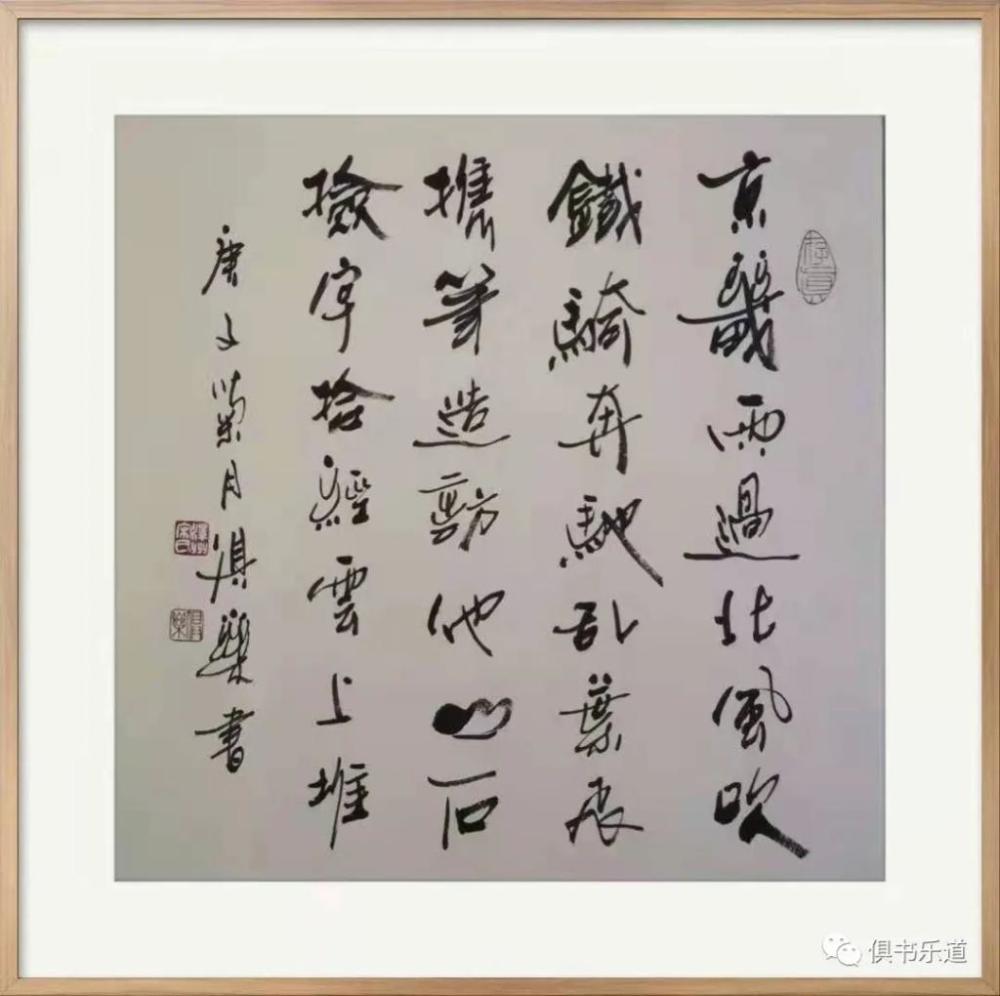 存真
京畿雨過北風吹
鐵騎奔馳乱葉飛
携筆造訪他山石
撿字拾經雲上堆
庚子菊月俱樂書
俱樂
俱书乐道